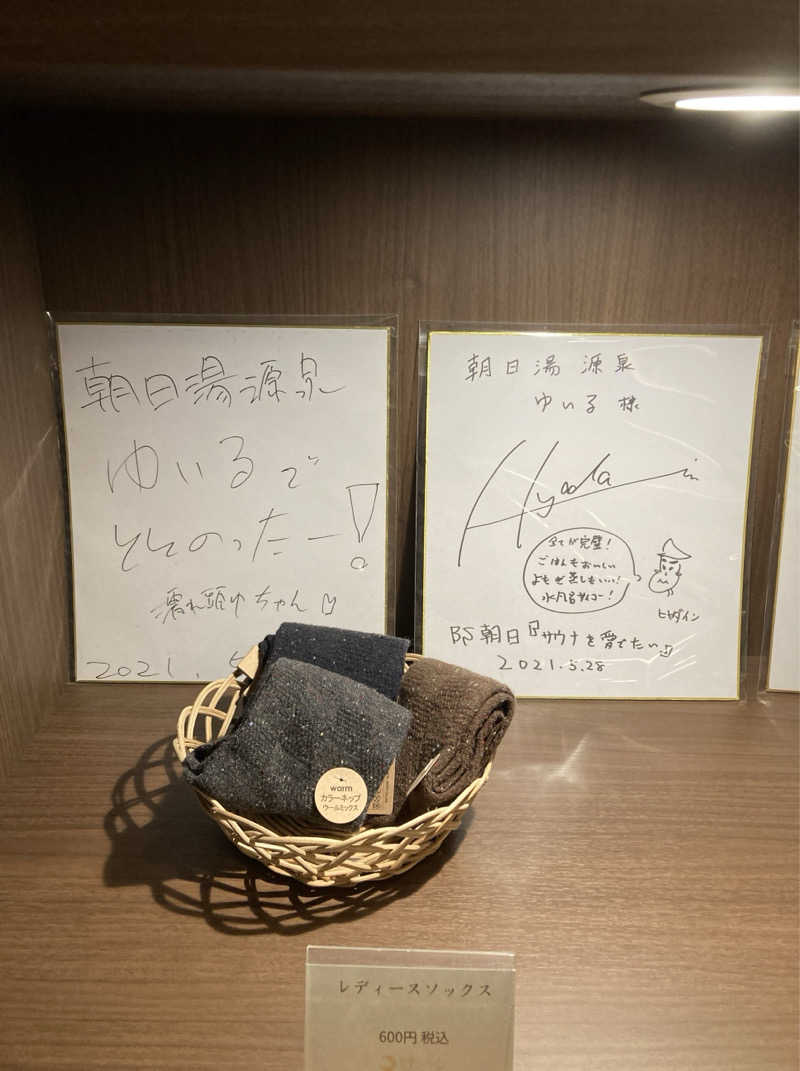 朝日湯源泉
ゆいるで
ととのったー!
濡れ頭巾ちゃん
2021.5
朝日湯 源泉
ゆいる 様
Hyadain
全てが完璧!
ごはんもおいしい
よもぎ蒸しもいい!
水風呂サイコー!
ヒャダイン
BS朝日『サウナを愛でたい』
2021.5.28
warm
カラーネップ
ウールミックス
レディースソックス
600円 税込